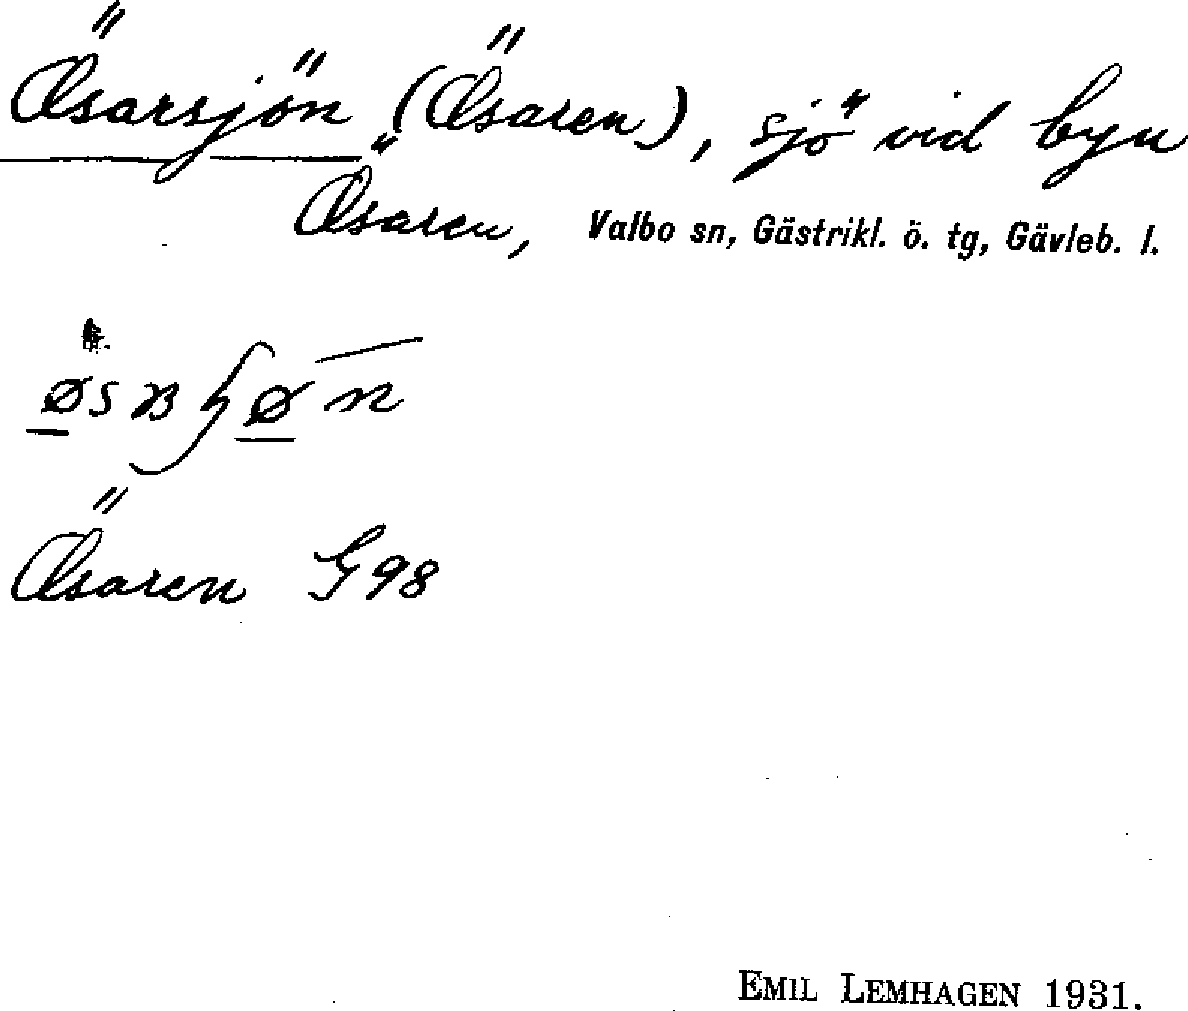 Ösarsjön (Ösaren), sjö vid byn
Ösaren, Valbo sn, Gästrikl. ö. tg, Gävleb. l.
Ösaren G98
EMIL LEMHAGEN 1931.